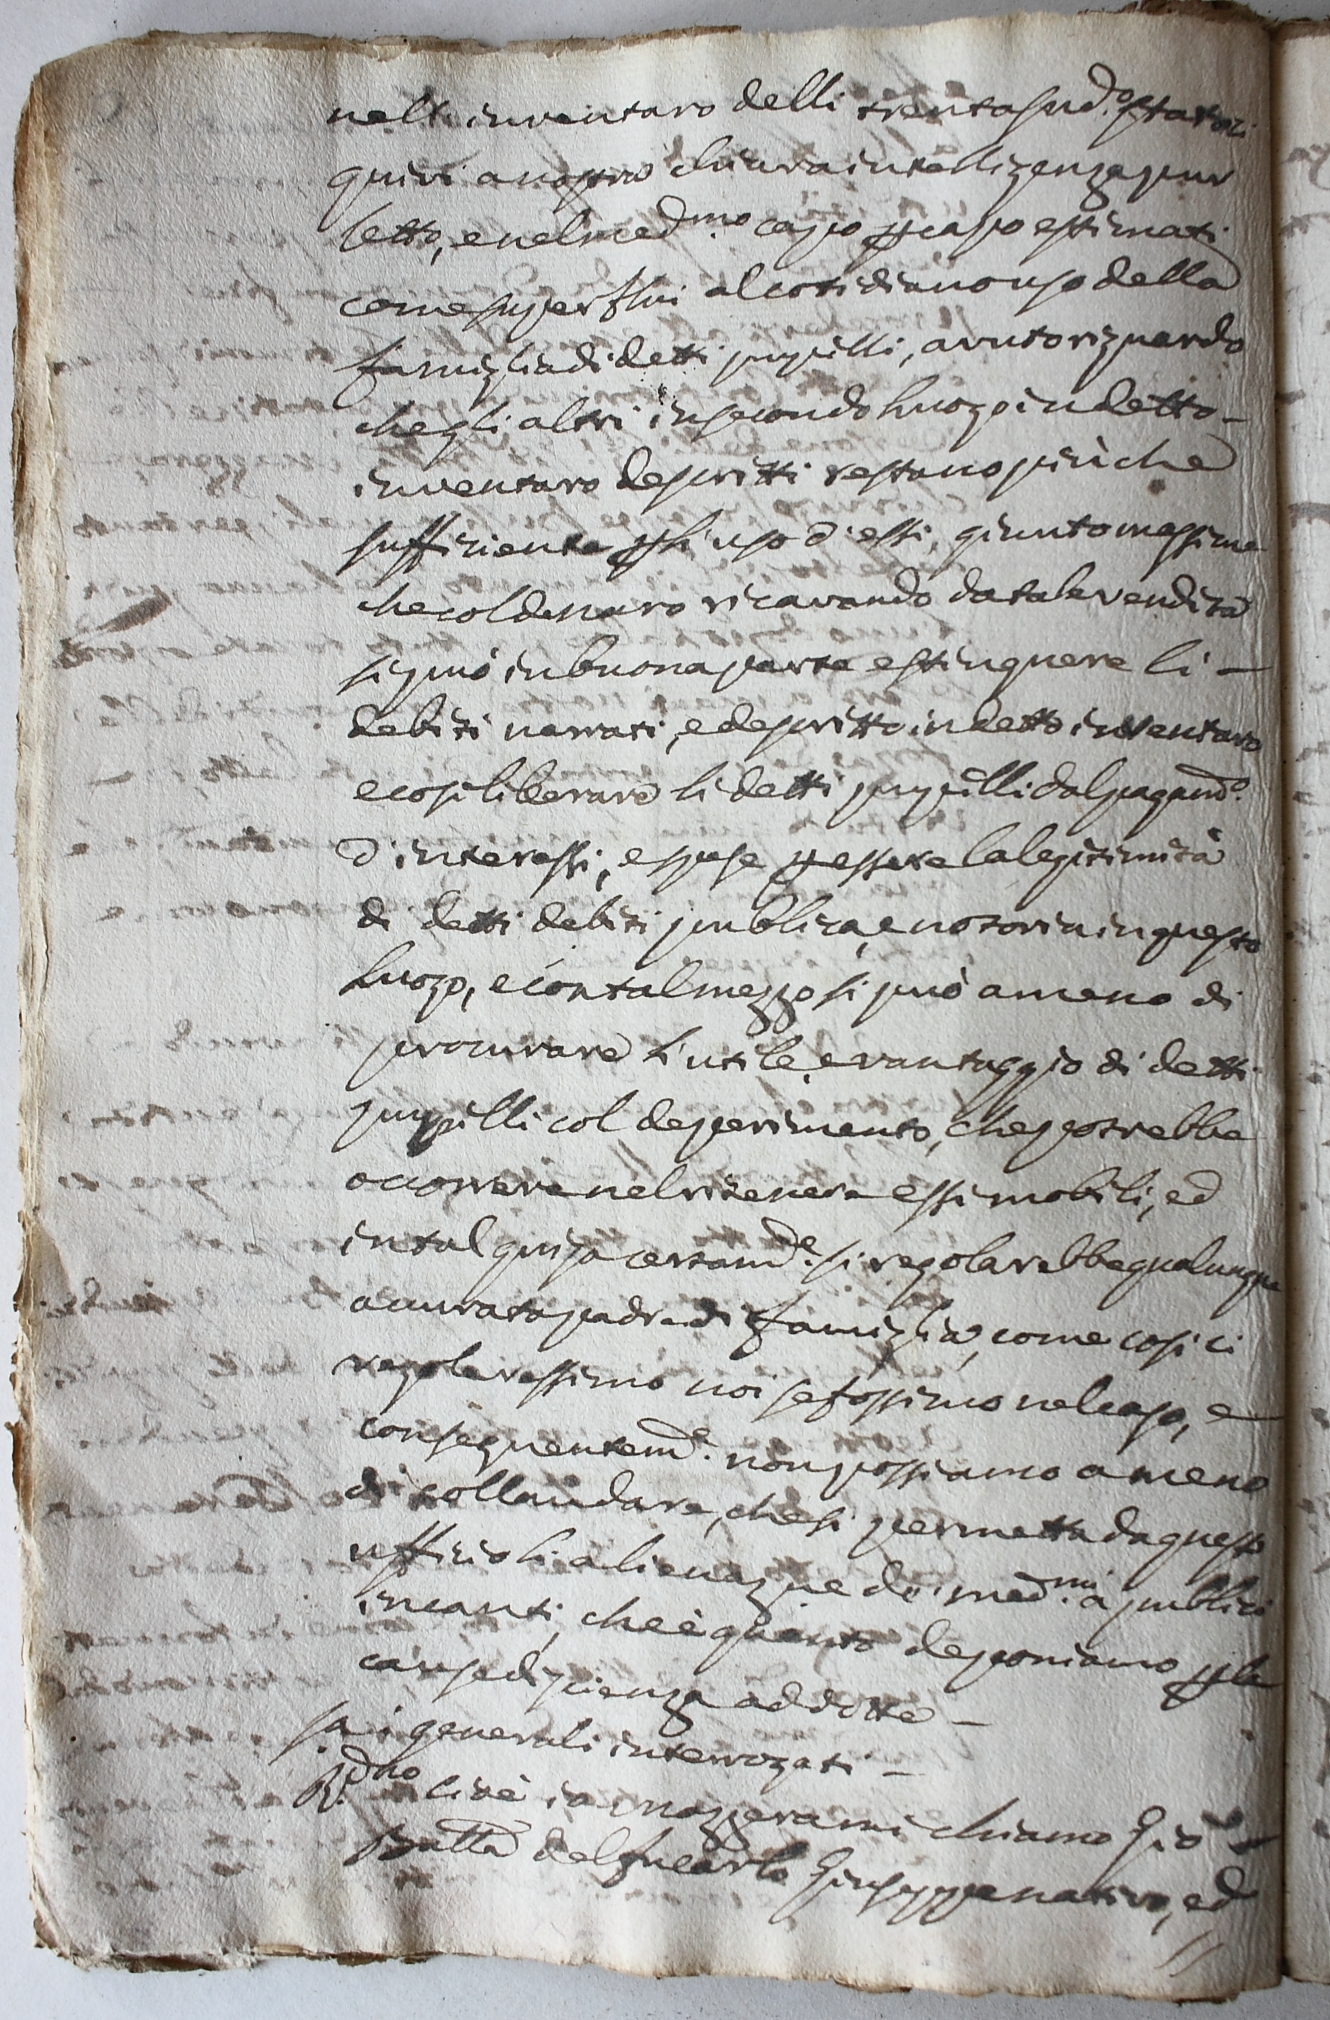 nell inventaro delli trenta sud.° statoci
quivi a nostra chiara intelligenza pur
letto, e nel med.mo capo p capo estimati
come superflui al cotidiano uso della
famiglia di detti pupilli, avuto riguardo
che gli altri in secondo luogo in detto -
inventaro descritti restano più che
sufficiente p l'uso d'essi, giunto massime
che col denaro ricavando da tale vendita
si può in buona parte estinguere li -
debiti narrati, e descritto in detto inventaro
e così liberare li detti pupilli dal pagam.°
d'interessi, e spese p essere la legitimità
di detti debiti publica, e notoria in questo
luogo, e con tal mezzo si può a meno di
procurare l'utile, e vantaggio di detti
pupilli col deperimento, che potrebbe
occorrere nel ritenere essi mobili, ed
in tal guisa certam.e si regolarebbe qualunque
accurato padre di famiglia, come così ci
regolaressimo noi se fossimo nel caso, e
conseguentem.e non possiamo a meno
di collaudare, che si permetta da questo
uffizio li alienaz.ne de med.mi a publici
incanti, che è quanto deponiamo p le
cause di scienza addotte -
Sa i generali interrogati -
R.do cioè io maggera mi chiamo Gio
Batta del fu Carlo Giuseppe nativo, ed